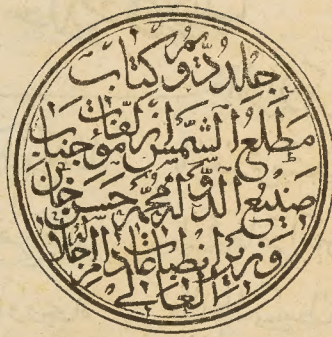 جلد دوّیم کتاب
مطلع الشّمس از مؤلّفات جناب
صنیع الدّوله محمّد حسن خان
وزیر انطباعات دام اجلاله
العالی